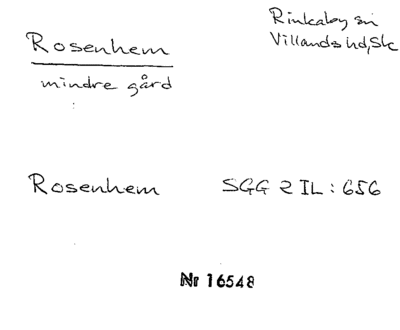 Rosenhem
mindre gård
Rinkaby sn
Villands hd, Sk
Rosenhem SGG 2 IL : 656
Nr 16548